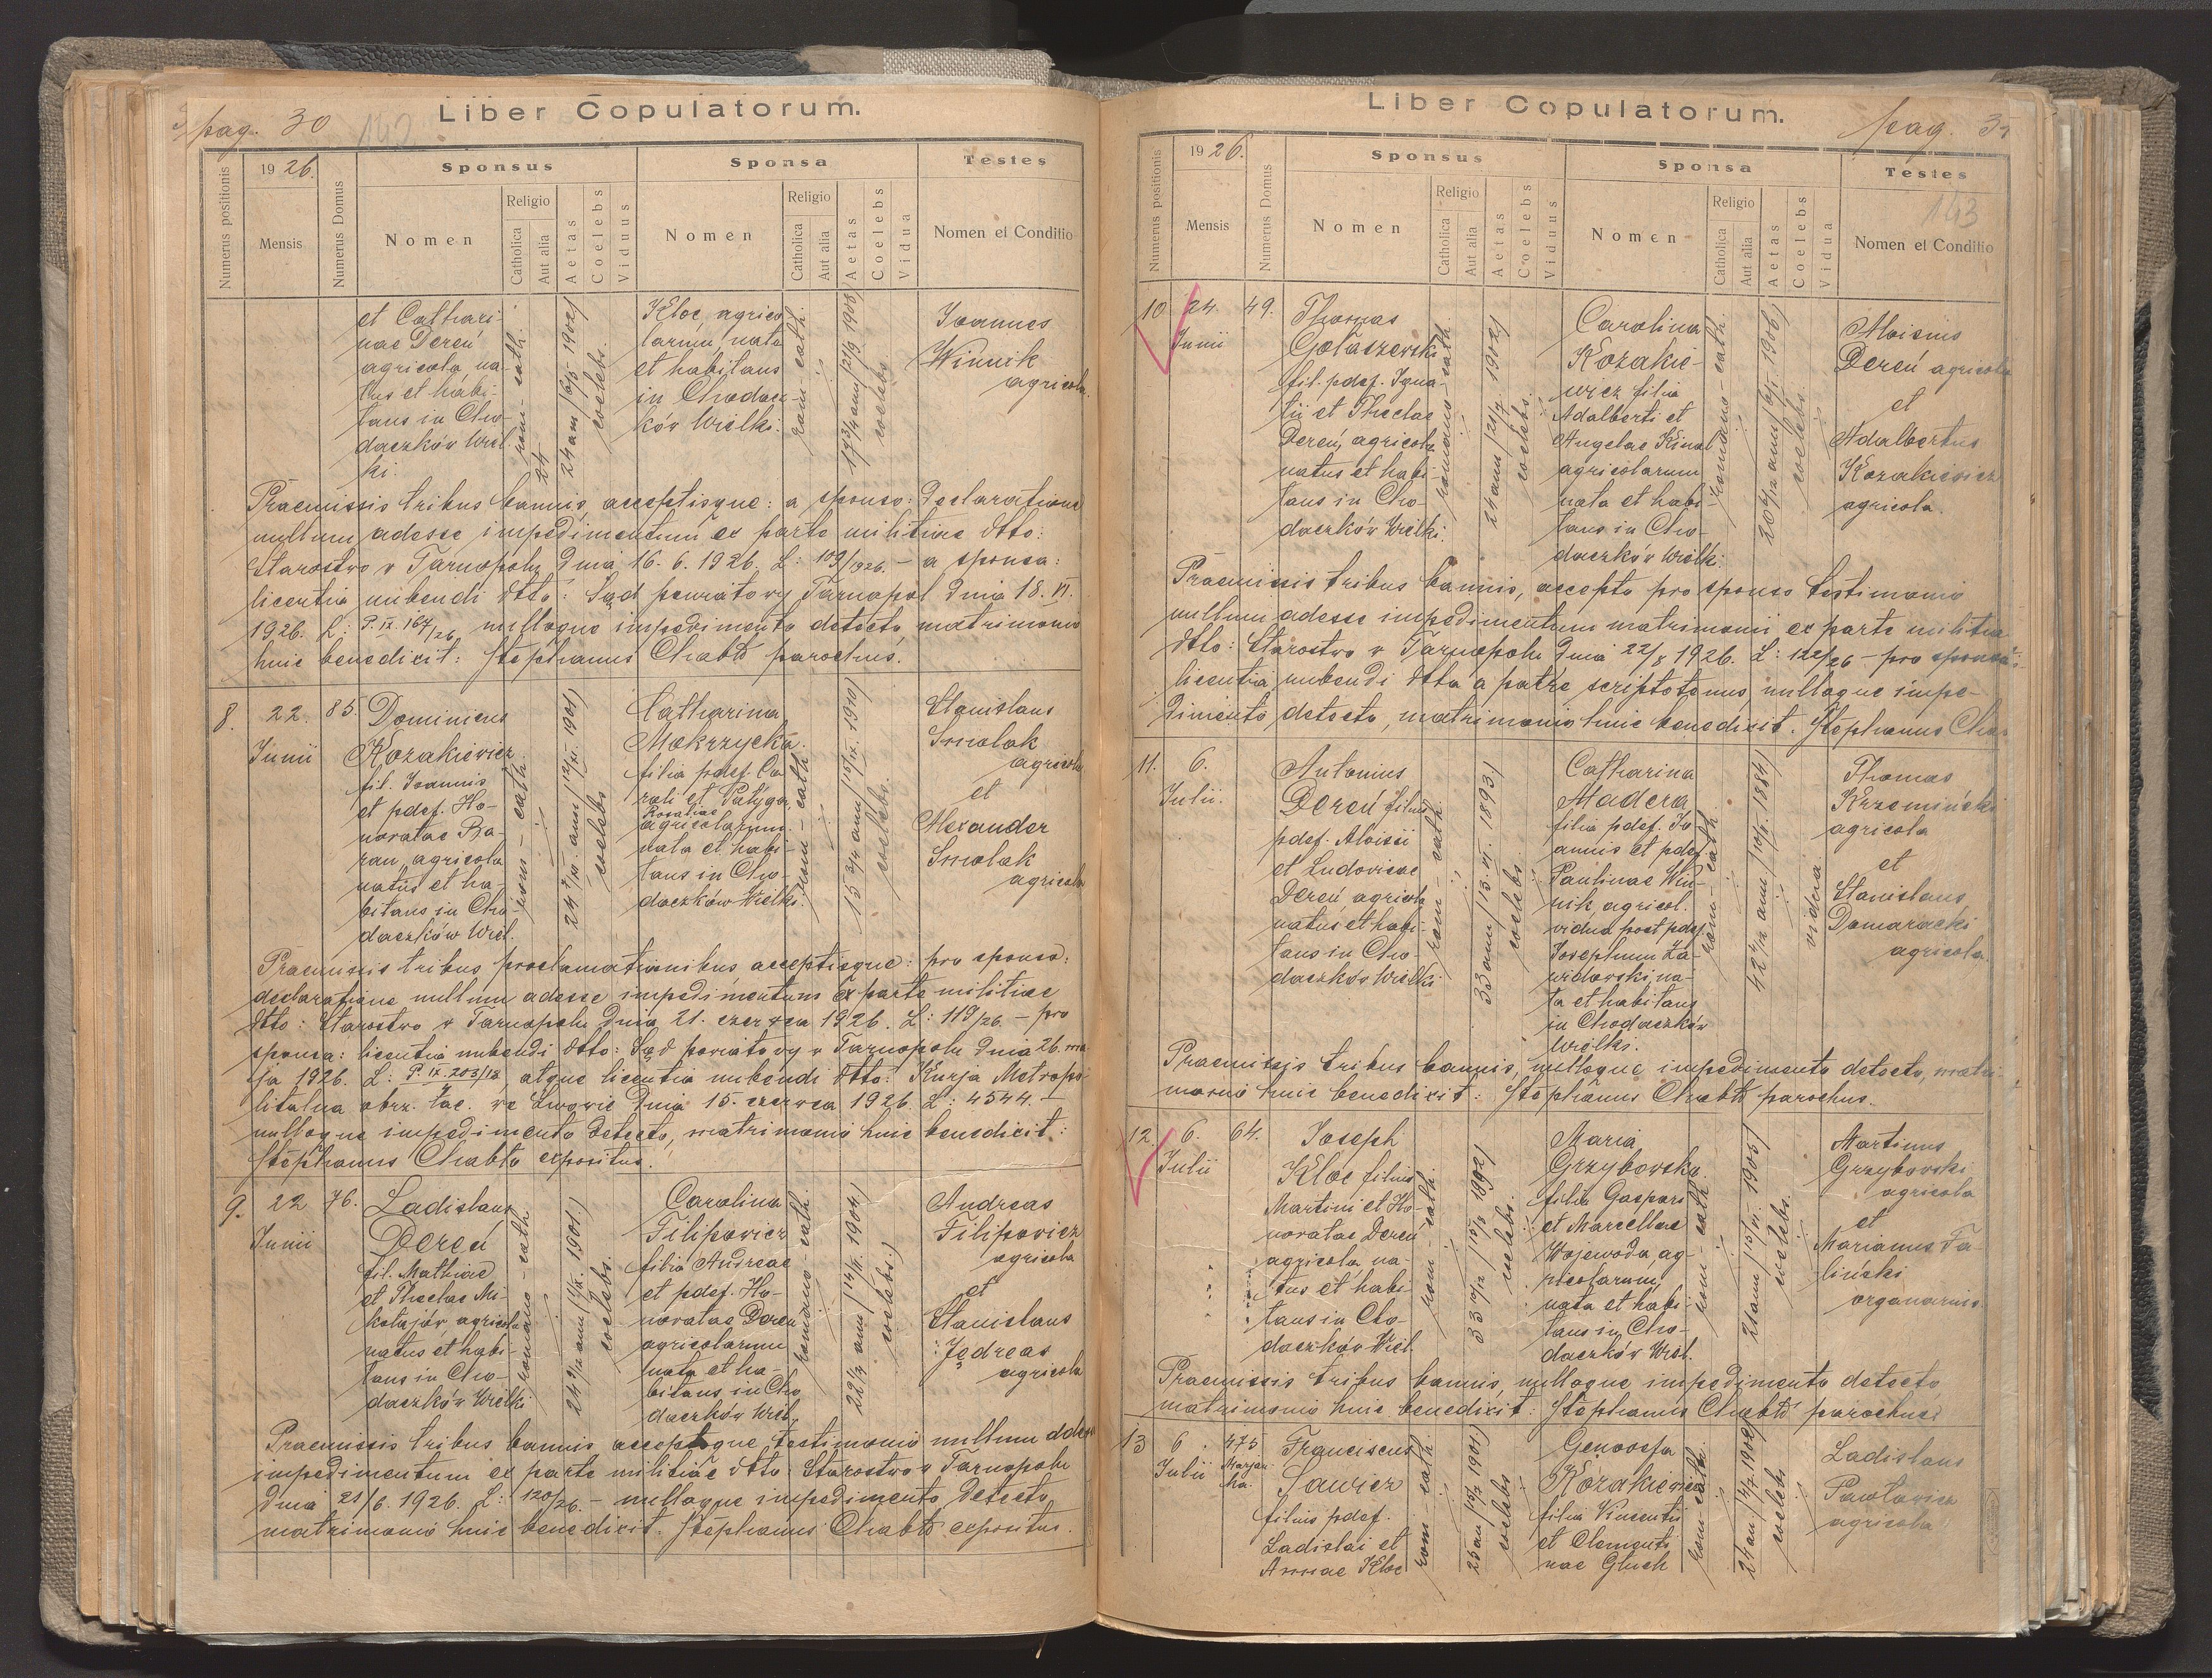 pag. 30
142
Liber Copulatorum.
Numerus positionis
1926.
Mensis
Numerus Domus
Sponsus
Nomen
Religio
Catholica
Aut alia
Aetas
Coelebs
Viduus
Sponsa
Nomen
Religio
Catholica
Aut alia
Aetas
Coelebs
Vidua
Testes
Nomen et Conditio
et Cathari-
nae Dereń
agricola, na-
tus et habi-
tans in Cho-
daczków Wiel-
ki.
rom-cath.
24
24 ann /6/5 1902/
coelebs.
Kloc, agrico
larum, nata
et habitans
in Chodacz-
ków Wielki.
rom-cath.
17 3/4 ann /21/9 1908/
coelebs
Joannes
Winnik
agricola.
Praemissis tribus bannis, acceptisque: a sponso: declaratione
nullum adesse impedimentum ex parte militiae dtto:
Starostwo w Tarnopolu dnia 16. 6. 1926. L: 109/1926. - a sponsa:
licentia nubendi dtto: Sąd powiatowy Tarnopol dnia 18. VI.
1926. L: P. IX. 167/26, nulloque impedimento detecto, matrimonio
huic benedixit: Stephanus Chabło parochus.
8.
22.
Junii
85.
Dominicus
Kozakiewicz
fil. Joannis
et pdef. Ho-
noratae Ba-
ran, agricola
natus et ha-
bitans in Cho-
daczków Wiel.
rom-cath.
24 7/12 ann /12/XI. 1901/
coelebs
Catharina
Mokrzycka.
filia pdef. Ca
roli et Patyga
Rosaliae
agricolarum.
nata et habi-
tans in Cho-
daczków Wielki.
rom-cath.
15 3/4 ann /15/IX. 1910/
coelebs.
Stanislaus
Smolak
agricola
et
Alexander
Smolak
agricola
Praemissis tribus proclamationibus acceptisque: pro sponso:
declaratione nullum adesse impedimentum ex parte militiae
dtto: Starostwo w Tarnopolu dnia 21. czerwca 1926. L: 119/26. - pro
sponsa: licentia nubendi dtto: Sąd powiatowy w Tarnopolu dnia 26. ma-
ja 1926. L: P. IX. 203/18, atque licentia nubendi dtto: Kurja Metropo
litalna obrz. łac. we Lwowie dnia 15. czerwca 1926. L: 4544. -
nulloque impedimento detecto, matrimonio huic benedixit:
Stephanus Chabło expositus.
9.
22
Junii
76.
Ladislaus
Dereń
fil. Mathiae
et Theclae Mi-
kołajów, agricola
natus et habi-
tans in Cho-
daczków Wielki
romano-cath.
coelebs.
Carolina
Filipowicz
filia Andreae
et pdef. Ho-
noratae Dereń
agricolarum
nata et ha-
bitans in Cho
daczków Wiel.
romano-cath.
coelebs.)
Andreas
Filipowicz
agricola
et
Stanislaus
Jędreas
agricola
Praemissis tribus bannis acceptoque testimonio nullum adesse
impedimentum ex parte militiae dtto: Starostwo w Tarnopolu
dnia 21/6. 1926. L: 120/26. - nulloque impedimento detecto
matrimonio huic benedixit. Stephanus Chabło expositus.
Liber Copulatorum.
pag. 31
143
Numerus positionis
1926.
Mensis
Numerus Domus
Sponsus
Nomen
Religio
Catholica
Aut alia
Aetas
Coelebs
Viduus
Sponsa
Nomen
Religio
Catholica
Aut alia
Aetas
Coelebs
Vidua
Testes
Nomen et Conditio
10
24.
Junii
49.
Thomas
Gołaszewski
fil. pdef. Igna-
tii et Theclae
Dereń, agricola
natus et habi-
tans in Cho-
daczków Wielki.
romano-cath.
coelebs.
Carolina
Kozakie-
wicz filia
Adalberti et
Angelae Kinal
agricolarum
nata et habi-
tans in Cho-
daczków Wielki.
romano-cath.
coelebs.
Aloisius
Dereń agricola
et
Adalbertus
Kozakiewicz
agricola.
Praemissis tribus bannis, accepto pro sponso testimonio
nullum adesse impedimentum matrimonii ex parte militia
dtto: Starostwo w Tarnopolu dnia 22/8 1926. L: 122/26 - pro sponsa:
licentia nubendi dtta a patre scriptotenus, nulloque impe-
dimento detecto, matrimonio huic benedixit. Stephanus Cha
11.
6.
Julii.
Antonius
Dereń filius
pdef. Aloisii
et Ludovicae
Dereń agricola
natus et habi-
tans in Cho-
daczków Wielki
rom-cath.
33 ann /13. VI. 1893/
coelebs.
Catharina
Madera
filia pdef. Jo
annis et pdef.
Paulinae Win-
nik, agricol.
vidua post pdef.
Josephum Za-
widowski, na-
ta et habitans
in Chodaczków
Wielki.
rom-cath.
vidua
Thomas
Krzemiński
agricola
et
Stanislaus
Domaracki
agricola.
Praemissis tribus bannis, nulloque impedimento detecto, matri-
monio huic benedixit: Stephanus Chabło parochus.
12.
6.
Julii
64.
Joseph
Kloc filius
Martini et Ho-
noratae Dereń
agricola, na-
tus et habi-
tans in Cho-
daczków Wiel.
rom-cath
coelebs.
Maria
Grzybowska
filia Gaspari
et Marcellae
Wojewoda, ag-
ricolarum,
nata et habi-
tans in Cho-
daczków Wiel.
rom-cath.
coelebs.
Martinus
Grzybowski
agricola
et
Marianus Fa-
liński
organarius.
Praemissis tribus bannis, nulloque impedimento detecto
matrimonio huic benedixit: Stephanus Chabło parochus
13
6.
Julii
475
Franciscus
Sawicz
filius pdef.
Ladislai et
Annae Kloc
rom-cath.
coelebs
Genovefa
Kozakiewicz
filia Vincentii
et Clementi
nae Gluch
rom-cath.
coelebs
Ladislaus
Pawłowicz
agricola